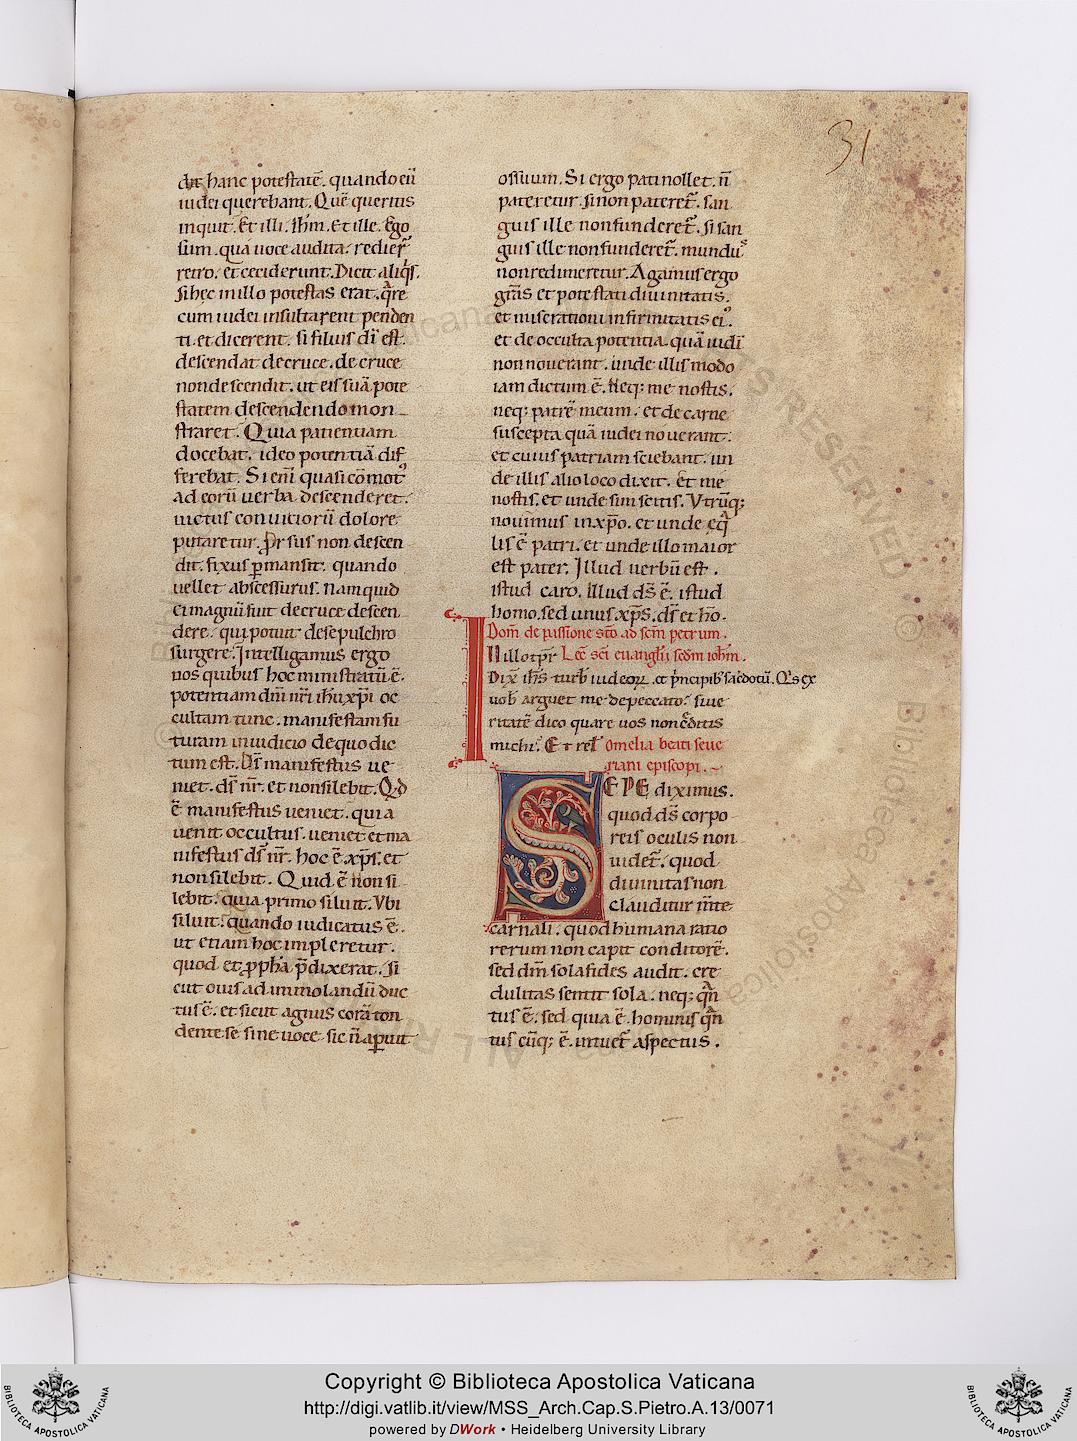 31
dit hanc potestatē. quando eū
iudei querebant. Quē queritis
inquit. Et illi. Ihm̄. Et ille. Ego
sum. qua uoce audita. redier̄
retro. et ceciderunt. Dicit aliq̇s.
si hec in illo potestas erat. q̄re
cum iudei insultarent penden
ti. et dicerent. si filius dī est.
descendat de cruce. de cruce
non descendit. ut eis suā pote
statem descendendo mon
straret. Quia patientiam
docebat. ideo potentiā dif
ferebat. Si enī quasi cōmot᾽
ad eorū uerba descenderet.
uictus conuitiorū dolore
putaretur. Prorsus non descen
dit. fixus ꝑmansit. quando
uellet abscessurus. Nam quid
ei magnū fuit de cruce descen
dere. qui potuit de sepulchro
surgere. Intelligamus ergo
nos quibus hoc ministratū ē.
potentiam dn̄i nr̄i ihū xp̄i oc
cultam tunc. manifestam fu
turam in iudicio de quo dic
tum est. Ds̄ manifestus ue
niet. ds̄ nr̄. et non silebit. Qd
ē manifestus ueniet. quia
uenit occultus. ueniet et ma
nifestus ds̄ nr̄. hoc ē xp̄s. et
non silebit. Quid ē non si
lebit. quia primo siluit. Vbi
siluit. quando iudicatus ē.
ut etiam hoc impleretur.
quod et ꝓpha p̄dixerat. Si
cut ouis ad immolandū duc
tus ē. et sicut agnus corā ton
dente se sine uoce. sic n̄ aꝑuit
os suum. Si ergo pati nollet. n̄
pateretur. si non pateret᷑. san
guis ille non funderet᷑. si san
guis ille non funderet᷑. mundu᾽
non redimeretur. Agamus ergo
gr̄as et potestati diuinitatis.
et miserationi infirmitatis ei᾽.
et de occulta potentia quā iudī
non nouerant. unde illis modo
iam dictum ē. Neq; me nostis.
neq; patrē meum. et de carne
suscepta quā iudei nouerant.
et cuius patriam sciebant. un
de illis alio loco dixit. et me
nostis. et unde sim scitis. Vtrūq;
nouimus in xp̄o. et unde eq̄
lis ē patri. et unde illo maior
est pater. Illud uerbū est.
istud caro. illud ds̄ ē. istud
homo. sed unus xp̄s. ds̄ et hō.
Dom̄ de passione stō ad scm̄ petrum.
IN illo tp̄r Lec̄ scī euanglīj scdm̄ ioh̄m.
Dix̄ ihs̄ turb̄ iudeoꝝ. et p̄ncipib᾽ sacdotū. Q᾽s ex
uob̄ arguet me de peccato. si ue
ritatē dico quare uos non c̄ditis
michi. Et rel̄ Omelia beati seue
riani episcopi.
SEPE diximus.
quod ds̄ corpo
reis oculis non
uidet᷑. quod
diuinitas non
clauditur m̄te
carnali. quod humana ratio
rerum non capit conditorē.
sed dm̄ sola fides audit. cre
dulitas sentit sola. neq; q̄n
tus ē. sed quia ē. hominis q̄n
tus cūq; ē. intuet᷑ aspectus.
Copyright © Biblioteca Apostolica Vaticana
http://digi.vatlib.it/view/MSS_Arch.Cap.S.Pietro.A.13/0071
powered by DWork • Heidelberg University Library
BIBLIOTECA APOSTOLICA VATICANA
BIBLIOTECA APOSTOLICA VATICANA